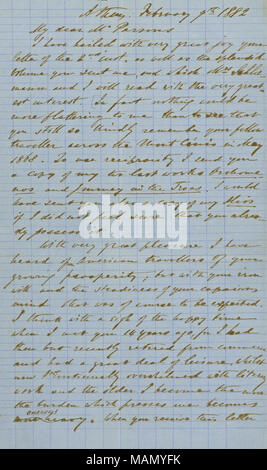 Athens, February 9th 1882
My dear Mr Parsons
I have hailed with very great joy your
letter of the 2nd inst. as well as the splendid
volume you sent me, and which Mrs Schlie-
mann and I will read with the very great-
est interest. In fact nothing could be
more flattering to me than to see that
you still so kindly remember your fellow
traveller across the Mont Cenis in May
1868. To use reciprocity I send you
a copy of my two last works Orchome-
nos and Journey in the Troad. I could
have sent you also a copy of my Ilios
if I did not feel sure that you alrea-
dy possess it.
With very great pleasure I have
heard of American travellers of your
growing prosperity; but with your iron
will and the steadiness of your capacious
mind that was of course to be expected.
I think with a sigh of the happy time
when I met you 14 years ago, for I had
then but recently retired from commerce
and had a great deal of leisure, whilst
now I'm continually overwhelmed with literary
work and the older I become the more
the burden which presses me becomes
onerous. When you receive this letter
alamy
Image ID: MAMYFK
www.alamy.com